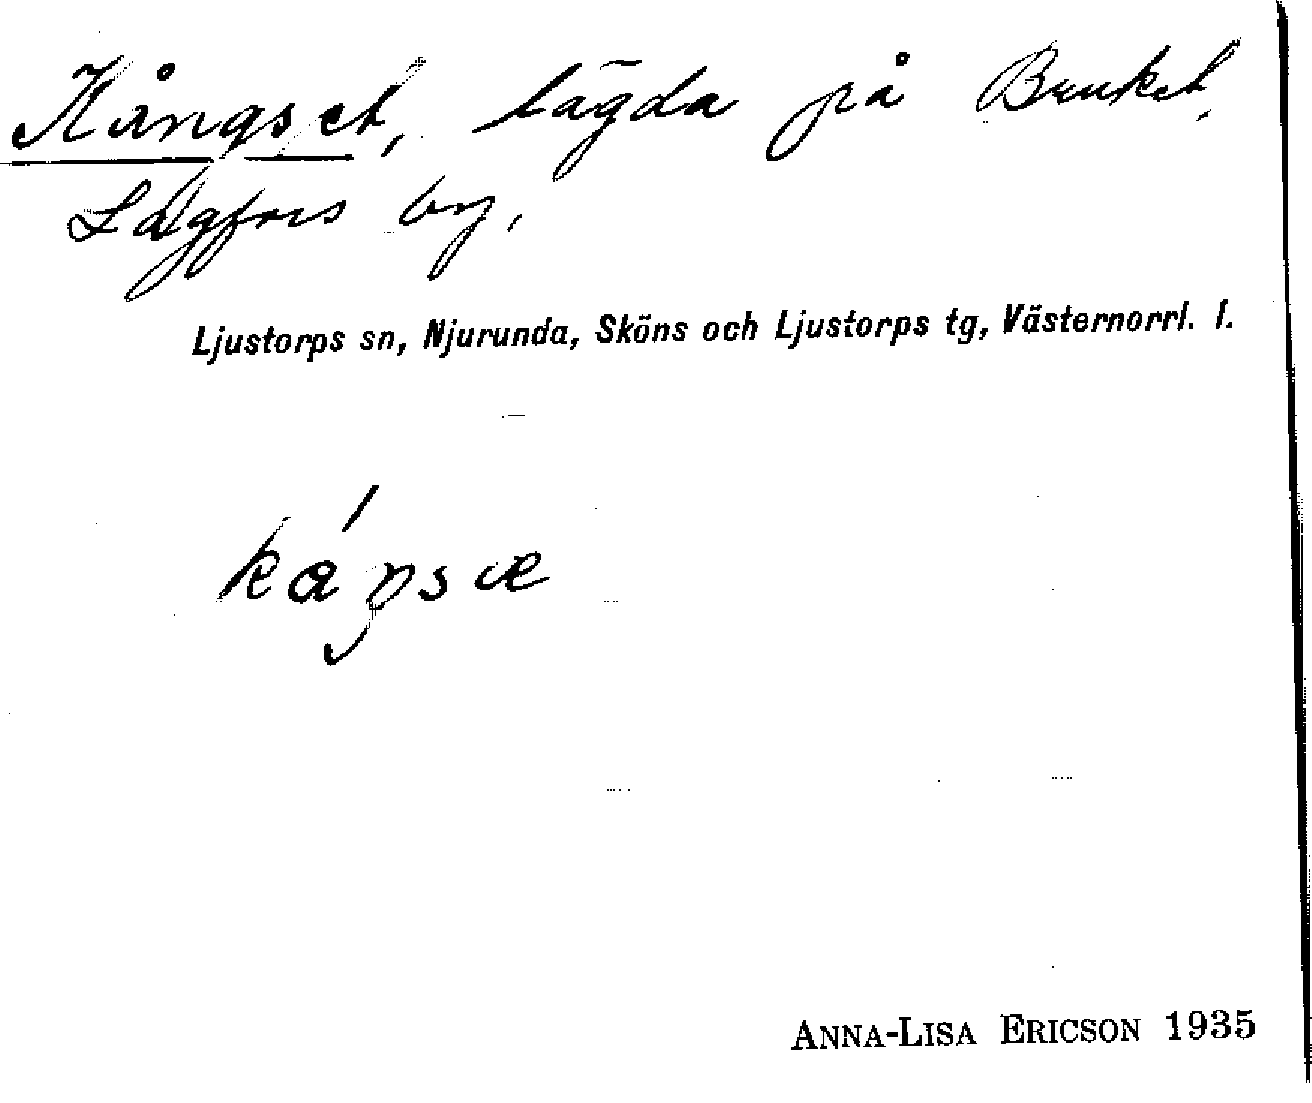 Kångset, lägda på Bruket,
Lagfors by,
Ljustorps sn, Njurunda, Sköns och Ljustorps tg, Västernorrl. l.
káŋsæ
ANNA-LISA ERICSON 1935